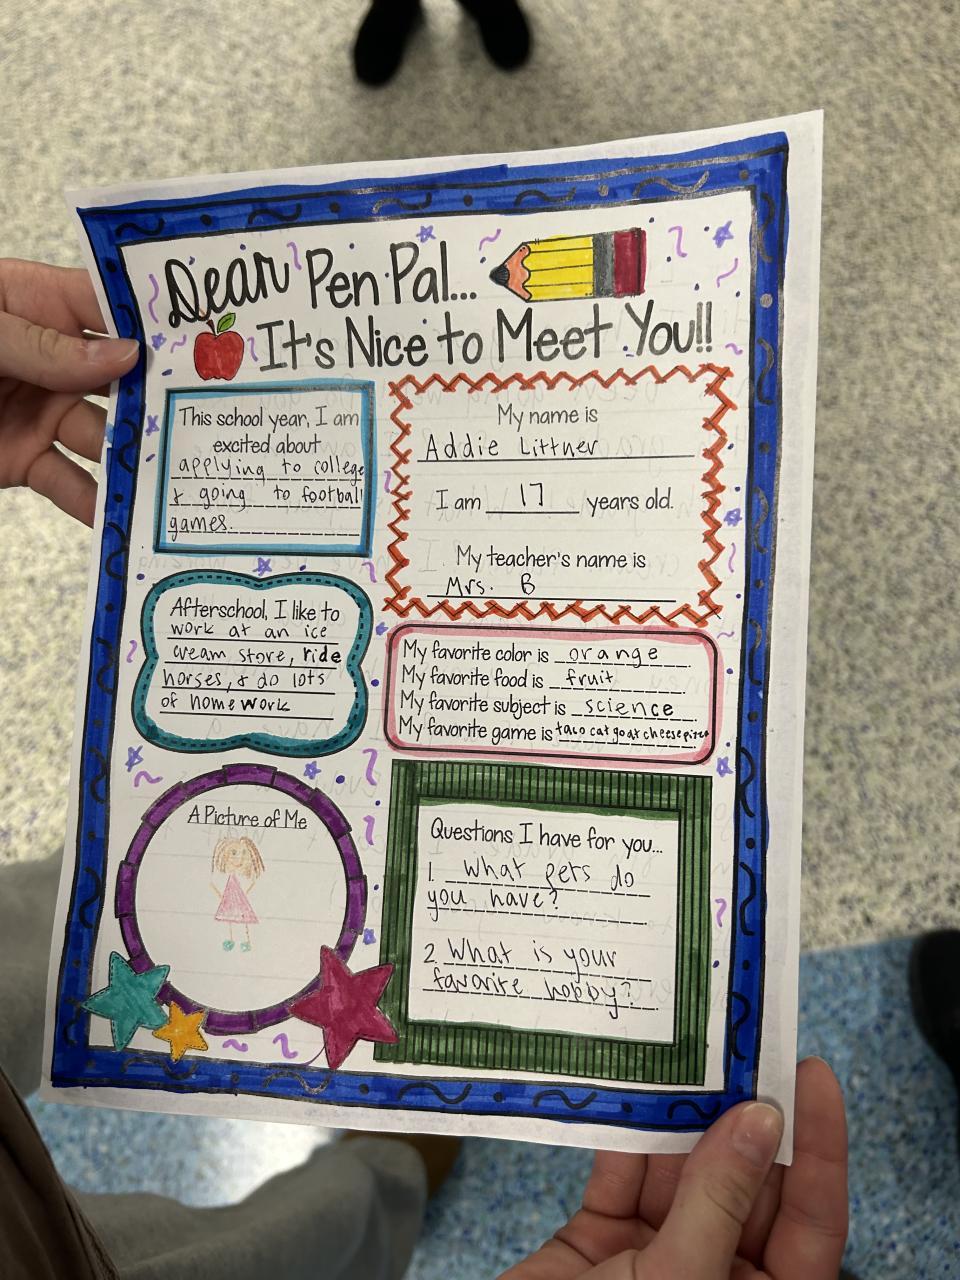 Dear Pen Pal...
It's Nice to Meet You!!
This school year, I am
excited about
applying to college
& going to football
games.
My name is
Addie Littner
I am 17 years old.
My teacher's name is
Mrs. B
Afterschool, I like to
work at an ice
cream store, ride
horses, & do lots
of homework
My favorite color is orange
My favorite food is fruit
My favorite subject is science
My favorite game is taco cat goat cheese pizza
A Picture of Me
Questions I have for you...
1. What pets do
you have?
2. What is your
favorite hobby?